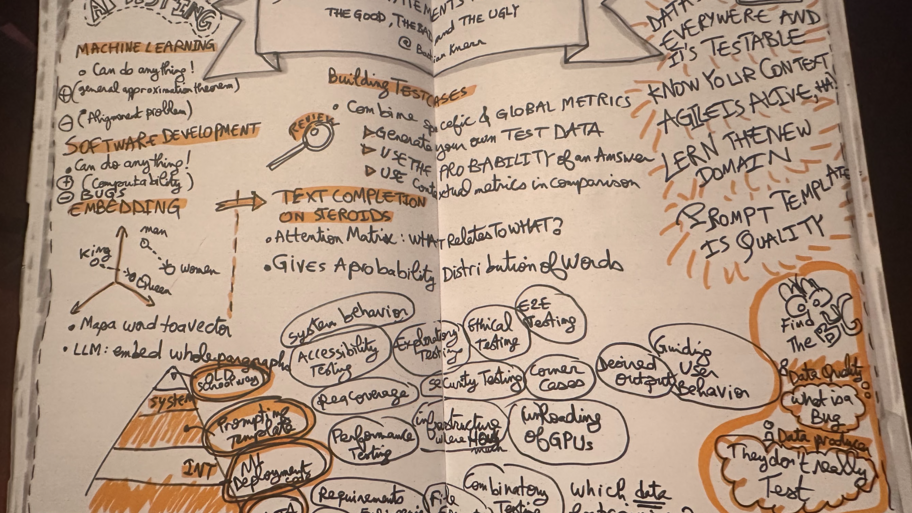 AI TESTING
THE GOOD, THE BAD and THE UGLY
MACHINE LEARNING
Can do anything!
+ (general approximation theorem)
- (Alignment problem)
SOFTWARE DEVELOPMENT
Can do anything!
+ (Computability)
- BUGS
EMBEDDING
King
man
women
Queen
Map a word to a vector
LLM: embed whole paragraph
Building TESTCASES
REVIEW
Combine specific & GLOBAL METRICS
Generate your own TEST DATA
USE THE PROBABILITY of an Answer
USE Contextual metrics in comparison
TEXT COMPLETION
ON STEROIDS
Attention Matrix: WHAT Relates TO WHAT?
Gives A probability Distribution of Words
DATA
EVERYWERE AND
IT'S TESTABLE
KNOW YOUR CONTEXT
AGILE IS ALIVE, HA!
LERN THE NEW
DOMAIN
PROMPT TEMPLATE
IS QUALITY
system behavior
Accessibility
Testing
Exploratory
Testing
Ethical
Testing
E2E
Testing
OLD
School way
system
Reacoverage
Security Testing
Corner
CASES
Desired
Output
Guiding
User
Behavior
Prompting
Template
Performance
Testing
infrastructure
where
mean
Unloading
of GPUs
INT
Deployment
Requirements
File
Combinatory
Testing
which data
Find
The
Data Quality
What is a
Bug
Data producer
They don't really
Test